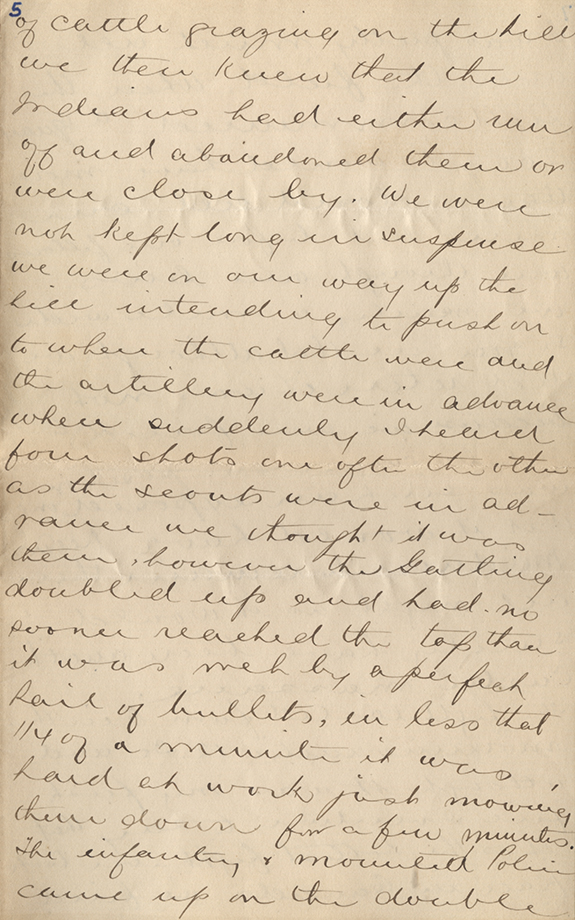 5
of cattle grazing on the hill
we then knew that the
Indians had either run
off and abandoned them or
were close by. We were
not kept long in suspense
we were on our way up the
hill intending to push on
to where the cattle were and
the artillery were in advance
when suddenly I heard
four shots one after the other
as the scouts were in ad-
vance we thought it was
them, however the Gatling
doubled up and had no
sooner reached the top than
it was meh by a perfect
hail of bullets, in less that
1/4 of a minute it was
hard at work just mowing
them down for a few minutes.
The infantry & mounted Police
came up on the double